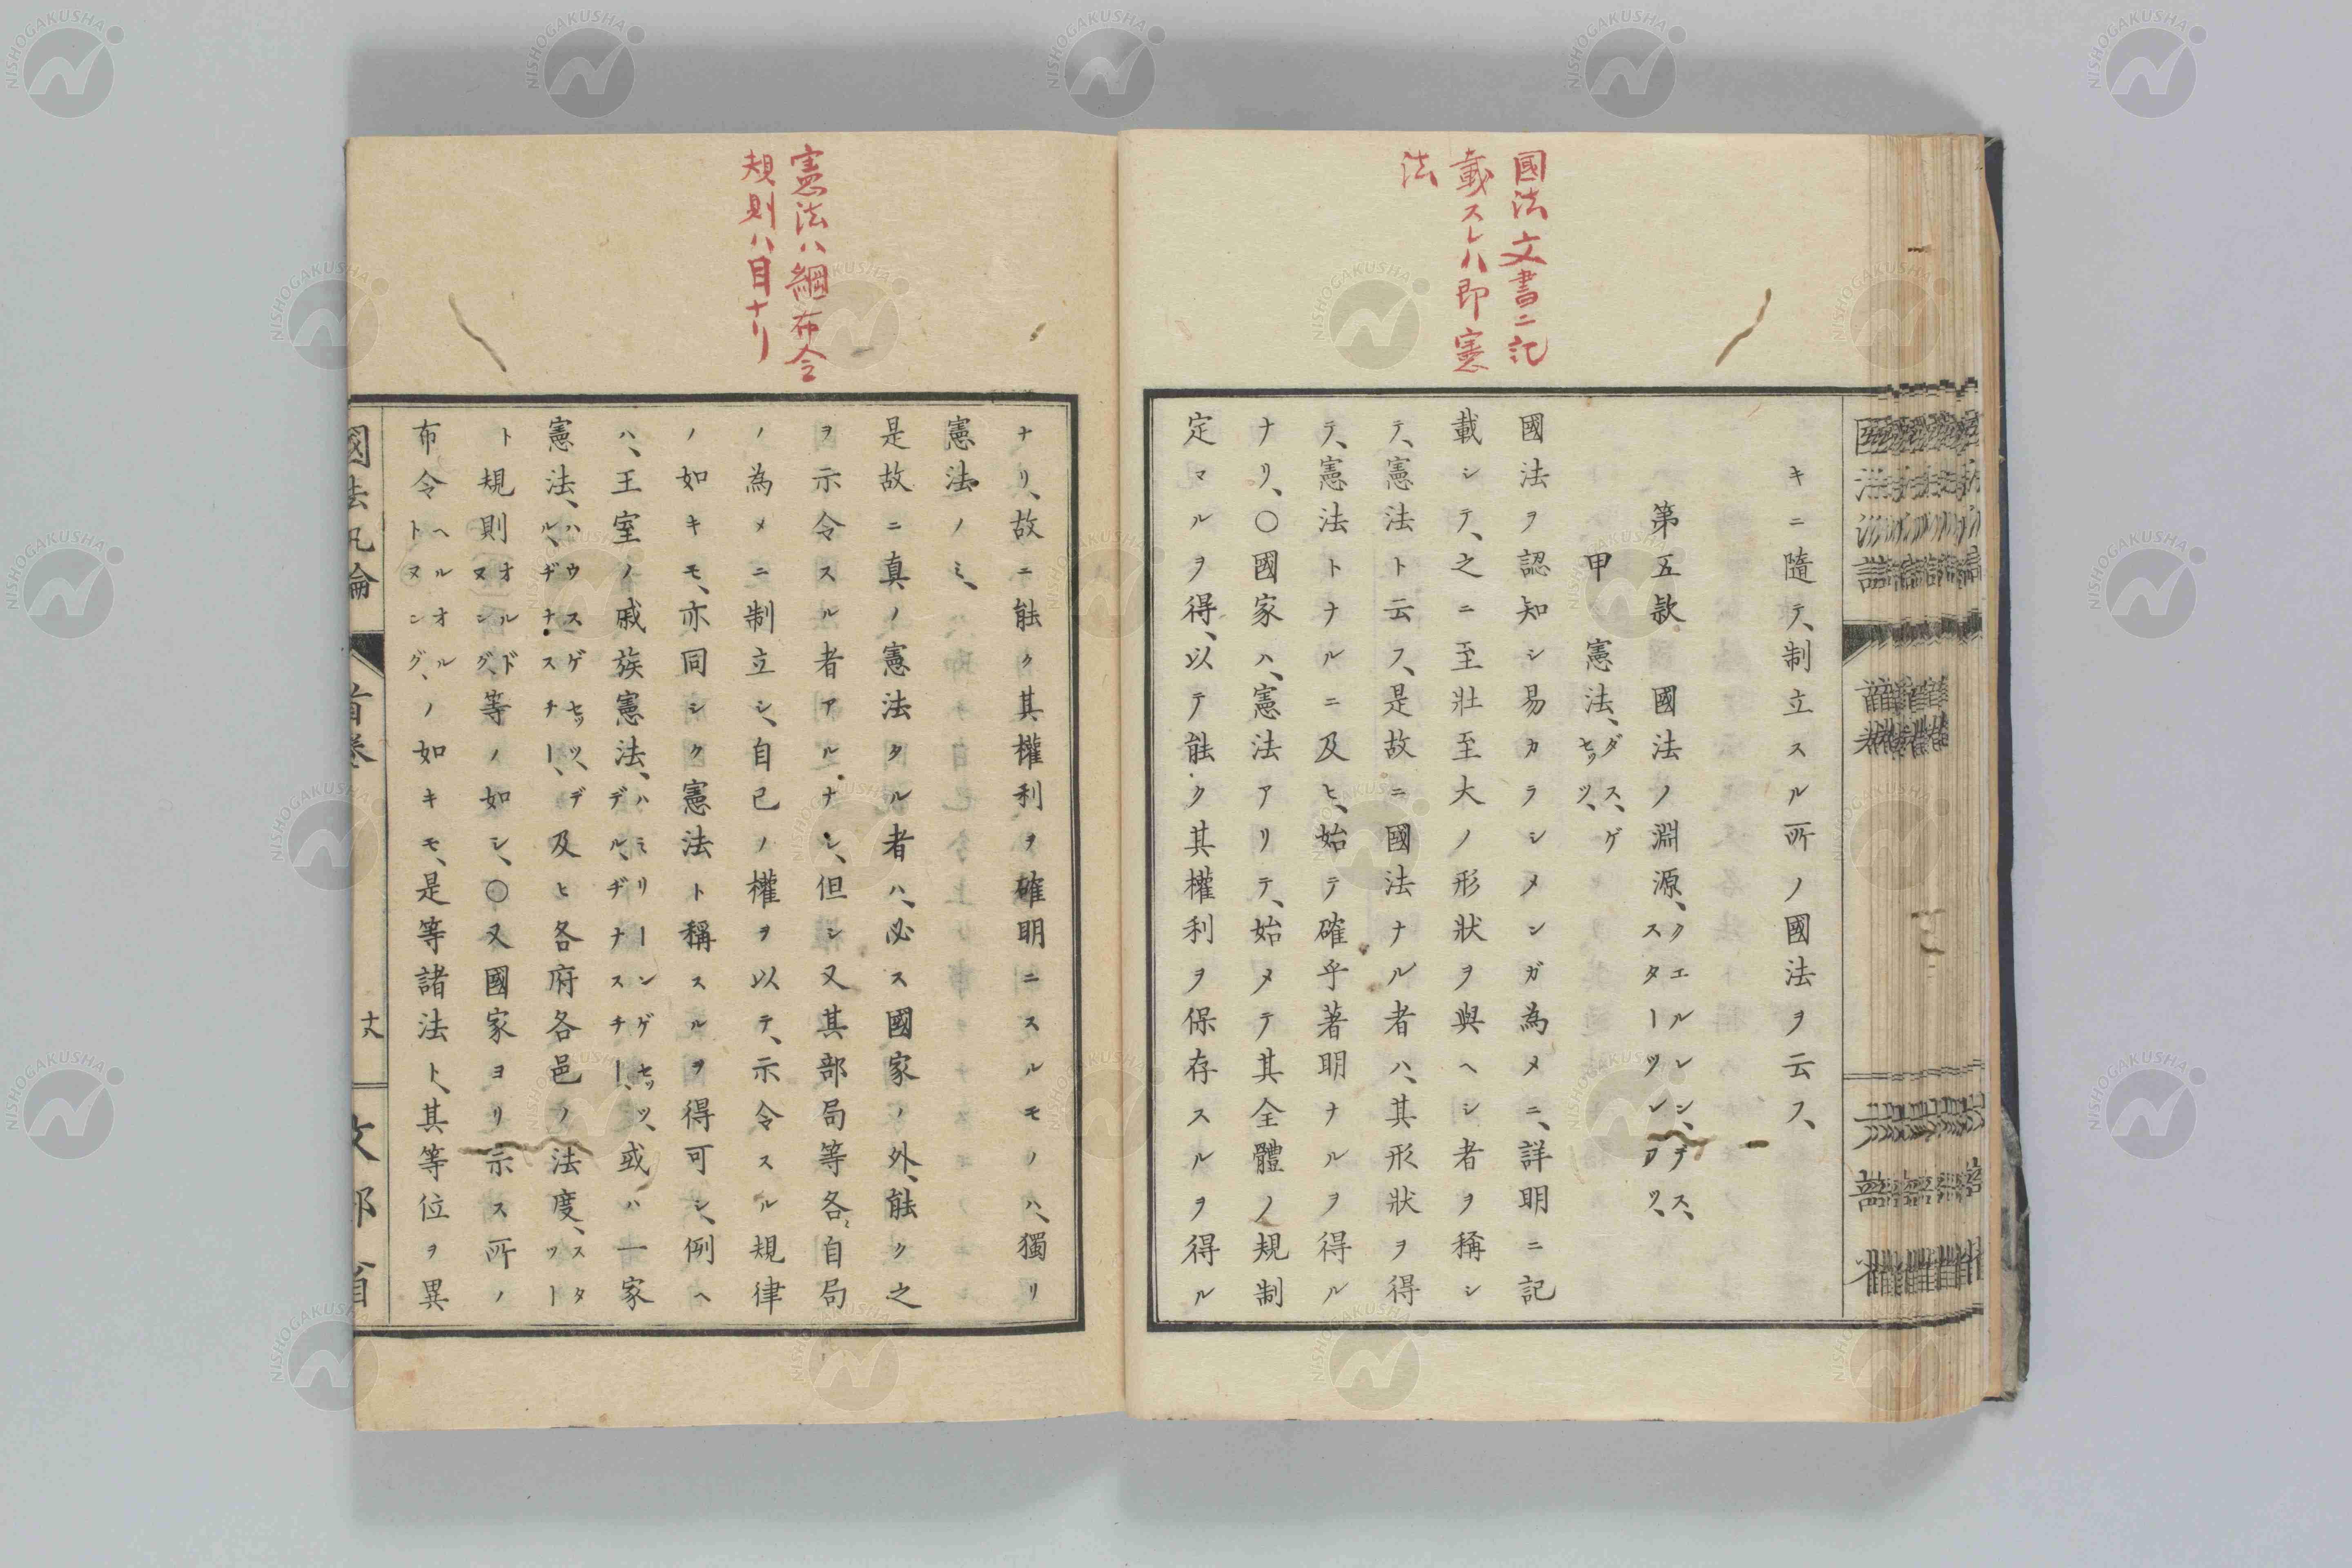 國法文書ニ記
載スレハ即憲
法
キニ隨テ、制立スル所ノ國法ヲ云フ、
第五款 國法ノ淵源、クエルレン、デス、スターツレフツ、
甲 憲法、ダス、ゲセッツ、
國法ヲ認知シ易カラシメンガ為メニ、詳明ニ記
載シテ、之ニ至壯至大ノ形狀ヲ與ヘシ者ヲ稱シ
テ、憲法ト云フ、是故ニ國法ナル者ハ、其形狀ヲ得
テ、憲法トナルニ及ヒ、始テ確乎著明ナルヲ得ル
ナリ、〇國家ハ、憲法アリテ、始メテ其全體ノ規制
定マルヲ得、以テ能ク其權利ヲ保存スルヲ得ル
憲法ハ綱布令
規則ハ目ナリ
ナリ、故ニ能ク其權利ヲ確明ニスルモノハ、獨リ
憲法ノミ、
是故ニ真ノ憲法タル者ハ、必ス國家ノ外、能ク之
ヲ示令スル者アルナシ、但シ又其部局等各〻自局
ノ為メニ制立シ、自己ノ權ヲ以テ、示令スル規律
ノ如キモ、亦同シク憲法ト稱スルヲ得可シ、例ヘ
ハ、王室ノ戚族憲法、ハミリーンゲセッツ、デル、ヂナスチー、或ハ一家
憲法、ハウスゲセッツ、デル、ヂナスチー、及ヒ各府各邑ノ法度、スタツート
ト規則オルドヌング、等ノ如シ、〇又國家ヨリ示ス所ノ
布令ヘルオルトヌング、ノ如キモ、是等諸法ト、其等位ヲ異
國法汎論 首卷 文部省
NISHOGAKUSHA